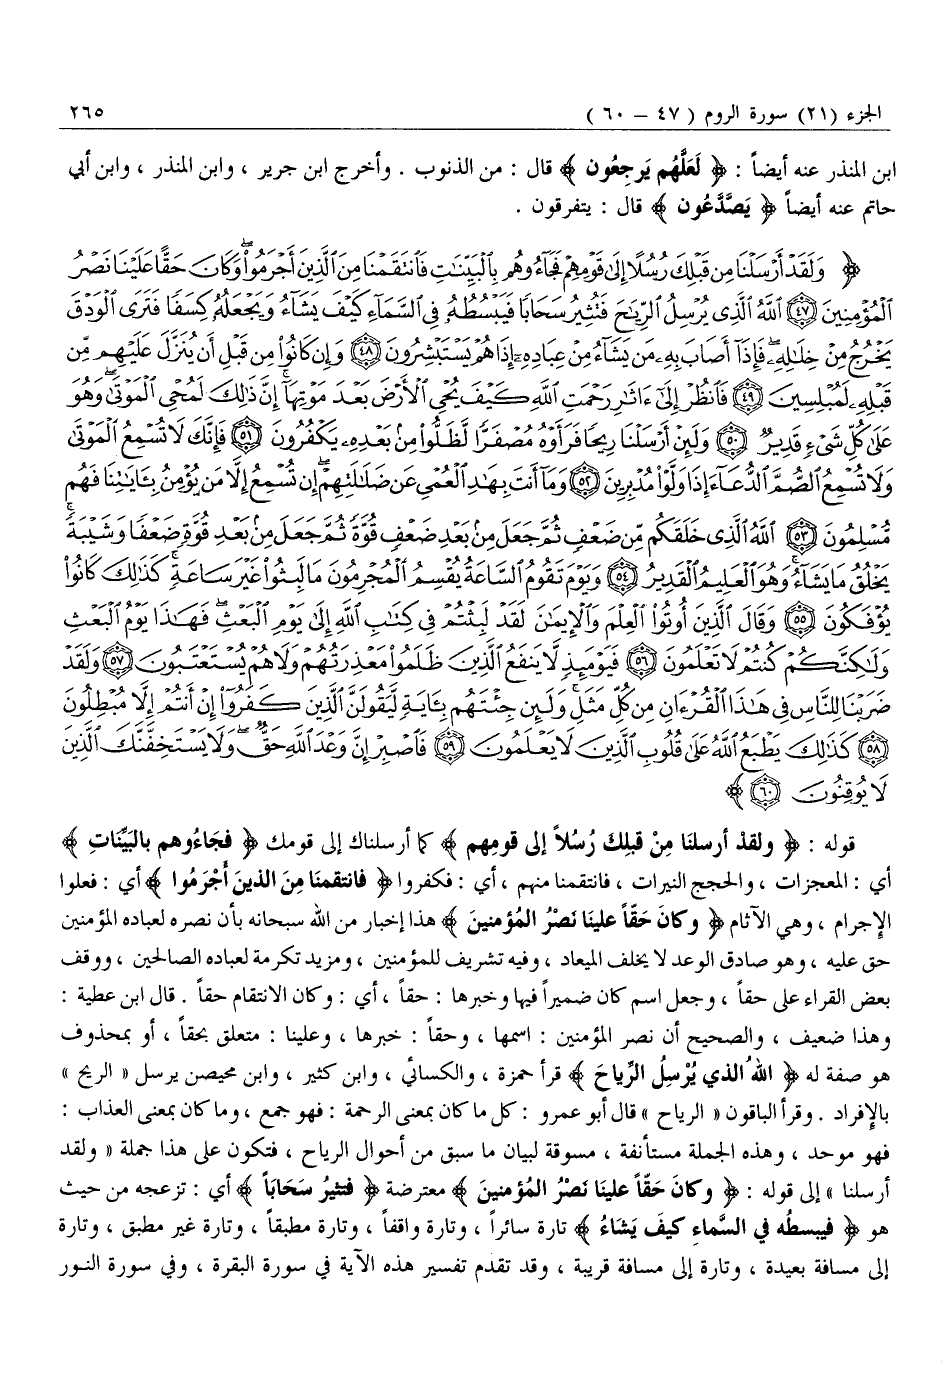 الجزء (٢١) سورة الروم ( ٤٧ – ٦٠ ) ٢٦٥
ابن المنذر عنه أيضاً : ﴿ لَعَلَّهُم يَرجِعُون ﴾ قال : من الذنوب . وأخرج ابن جرير ، وابن المنذر ، وابن أبي
حاتم عنه أيضاً ﴿ يَصَّدَّعُون ﴾ قال : يتفرقون .
﴿ وَلَقَدْ أَرْسَلْنَا مِن قَبْلِكَ رُسُلًا إِلَىٰ قَوْمِهِمْ فَجَآءُوهُم بِٱلْبَيِّنَٰتِ فَٱنتَقَمْنَا مِنَ ٱلَّذِينَ أَجْرَمُوا۟ ۖ وَكَانَ حَقًّا عَلَيْنَا نَصْرُ
ٱلْمُؤْمِنِينَ ٤٧ ٱللَّهُ ٱلَّذِى يُرْسِلُ ٱلرِّيَٰحَ فَتُثِيرُ سَحَابًا فَيَبْسُطُهُۥ فِى ٱلسَّمَآءِ كَيْفَ يَشَآءُ وَيَجْعَلُهُۥ كِسَفًا فَتَرَى ٱلْوَدْقَ
يَخْرُجُ مِنْ خِلَٰلِهِۦ ۖ فَإِذَآ أَصَابَ بِهِۦ مَن يَشَآءُ مِنْ عِبَادِهِۦٓ إِذَا هُمْ يَسْتَبْشِرُونَ ٤٨ وَإِن كَانُوا۟ مِن قَبْلِ أَن يُنَزَّلَ عَلَيْهِم مِّن
قَبْلِهِۦ لَمُبْلِسِينَ ٤٩ فَٱنظُرْ إِلَىٰٓ ءَاثَٰرِ رَحْمَتِ ٱللَّهِ كَيْفَ يُحْىِ ٱلْأَرْضَ بَعْدَ مَوْتِهَآ ۚ إِنَّ ذَٰلِكَ لَمُحْىِ ٱلْمَوْتَىٰ ۖ وَهُوَ
عَلَىٰ كُلِّ شَىْءٍ قَدِيرٌ ٥٠ وَلَئِنْ أَرْسَلْنَا رِيحًا فَرَأَوْهُ مُصْفَرًّا لَّظَلُّوا۟ مِنۢ بَعْدِهِۦ يَكْفُرُونَ ٥١ فَإِنَّكَ لَا تُسْمِعُ ٱلْمَوْتَىٰ
وَلَا تُسْمِعُ ٱلصُّمَّ ٱلدُّعَآءَ إِذَا وَلَّوْا۟ مُدْبِرِينَ ٥٢ وَمَآ أَنتَ بِهَٰدِ ٱلْعُمْىِ عَن ضَلَٰلَتِهِمْ ۖ إِن تُسْمِعُ إِلَّا مَن يُؤْمِنُ بِـَٔايَٰتِنَا فَهُم
مُّسْلِمُونَ ٥٣ ٱللَّهُ ٱلَّذِى خَلَقَكُم مِّن ضَعْفٍ ثُمَّ جَعَلَ مِنۢ بَعْدِ ضَعْفٍ قُوَّةً ثُمَّ جَعَلَ مِنۢ بَعْدِ قُوَّةٍ ضَعْفًا وَشَيْبَةً ۚ
يَخْلُقُ مَا يَشَآءُ ۖ وَهُوَ ٱلْعَلِيمُ ٱلْقَدِيرُ ٥٤ وَيَوْمَ تَقُومُ ٱلسَّاعَةُ يُقْسِمُ ٱلْمُجْرِمُونَ مَا لَبِثُوا۟ غَيْرَ سَاعَةٍ ۚ كَذَٰلِكَ كَانُوا۟
يُؤْفَكُونَ ٥٥ وَقَالَ ٱلَّذِينَ أُوتُوا۟ ٱلْعِلْمَ وَٱلْإِيمَٰنَ لَقَدْ لَبِثْتُمْ فِى كِتَٰبِ ٱللَّهِ إِلَىٰ يَوْمِ ٱلْبَعْثِ ۖ فَهَٰذَا يَوْمُ ٱلْبَعْثِ
وَلَٰكِنَّكُمْ كُنتُمْ لَا تَعْلَمُونَ ٥٦ فَيَوْمَئِذٍ لَّا يَنفَعُ ٱلَّذِينَ ظَلَمُوا۟ مَعْذِرَتُهُمْ وَلَا هُمْ يُسْتَعْتَبُونَ ٥٧ وَلَقَدْ
ضَرَبْنَا لِلنَّاسِ فِى هَٰذَا ٱلْقُرْءَانِ مِن كُلِّ مَثَلٍ ۚ وَلَئِن جِئْتَهُم بِـَٔايَةٍ لَّيَقُولَنَّ ٱلَّذِينَ كَفَرُوٓا۟ إِنْ أَنتُمْ إِلَّا مُبْطِلُونَ
٥٨ كَذَٰلِكَ يَطْبَعُ ٱللَّهُ عَلَىٰ قُلُوبِ ٱلَّذِينَ لَا يَعْلَمُونَ ٥٩ فَٱصْبِرْ إِنَّ وَعْدَ ٱللَّهِ حَقٌّ ۖ وَلَا يَسْتَخِفَّنَّكَ ٱلَّذِينَ
لَا يُوقِنُونَ ٦٠ ﴾
قوله : ﴿ ولقدْ أرسلنَا مِنْ قبلِكَ رُسُلاً إلى قومِهم ﴾ كما أرسلناك إلى قومك ﴿ فجَاءُوهم بالبَيِّنَاتِ ﴾
أي : المعجزات ، والحجج النيرات ، فانتقمنا منهم ، أي : فكفروا ﴿ فانتقمنَا مِنَ الذينَ أَجْرَمُوا ﴾ أي : فعلوا
الإجرام ، وهي الآثام ﴿ وكانَ حَقّاً علينَا نَصْرُ المؤمنينَ ﴾ هذا إخبار من الله سبحانه بأن نصره لعباده المؤمنين
حق عليه ، وهو صادق الوعد لا يخلف الميعاد ، وفيه تشريف للمؤمنين ، ومزيد تكرمة لعباده الصالحين ، ووقف
بعض القراء على حقاً ، وجعل اسم كان ضميراً فيها وخبرها : حقاً ، أي : وكان الانتقام حقاً . قال ابن عطية :
وهذا ضعيف ، والصحيح أن نصر المؤمنين : اسمها ، وحقاً : خبرها ، وعلينا : متعلق بحقاً ، أو بمحذوف
هو صفة له ﴿ اللهُ الذي يُرْسِلُ الرِّياحَ ﴾ قرأ حمزة ، والكسائي ، وابن كثير ، وابن محيصن يرسل « الريح »
بالإفراد . وقرأ الباقون « الرياح » قال أبو عمرو : كل ما كان بمعنى الرحمة : فهو جمع ، وما كان بمعنى العذاب :
فهو موحد ، وهذه الجملة مستأنفة ، مسوقة لبيان ما سبق من أحوال الرياح ، فتكون على هذا جملة « ولقد
أرسلنا » إلى قوله : ﴿ وكانَ حَقّاً علينَا نَصْرُ المؤمنينَ ﴾ معترضة ﴿ فتثيرُ سَحَاباً ﴾ أي : تزعجه من حيث
هو ﴿ فيبسطُه في السَّماءِ كيفَ يَشَاءُ ﴾ تارة سائراً ، وتارة واقفاً ، وتارة مطبقاً ، وتارة غير مطبق ، وتارة
إلى مسافة بعيدة ، وتارة إلى مسافة قريبة ، وقد تقدم تفسير هذه الآية في سورة البقرة ، وفي سورة النور